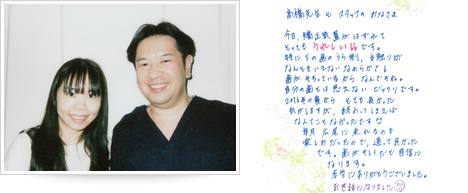 高橋先生と スタッフの みなさま
今日、矯正装置がはずれて
とっても うれしい です。
特に下の歯のうら側、舌触りが
なんともいえない なめらかさ!
歯が そろっているから なんですね。
自分の歯とは 思えない ビックリです。
2016年の夏から とても長かった
気がしますが、終わってしまえば
なんてことなかったです
毎月 広尾に来れるのも
楽しみだったので、通って良かった
です。歯がキレイだと 自信に
なります。
本当にありがとうございました。
お世話になりました